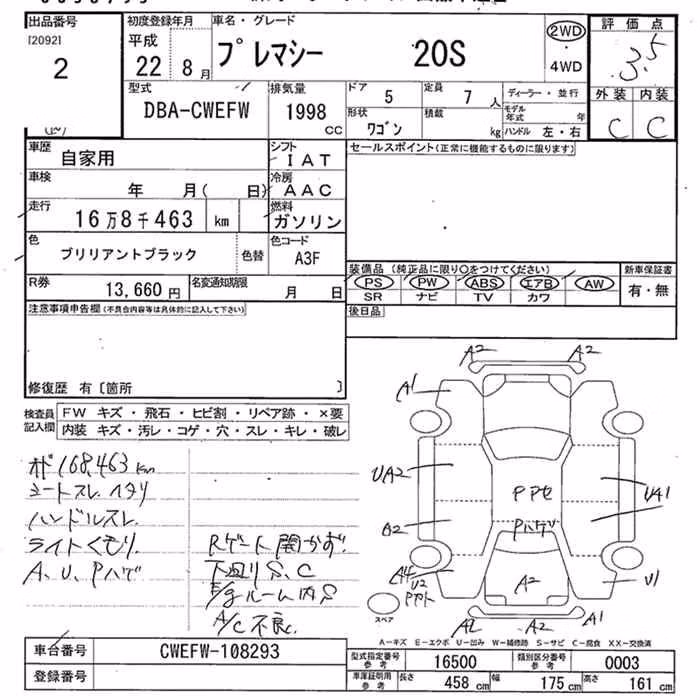 出品番号
[2092]
2
初度登録年月
平成
22 8月
車名・グレード
プレマシー 20S
2WD
・
4WD
評価点
3.5
外装 内装
C C
型式
DBA-CWEFW
排気量
1998
cc
ドア
5
定員
7 人
形状
ワゴン
積載
kg
ディーラー・並行
モデル
年式 年
ハンドル 左・右
車歴
自家用
シフト
IAT
車検
年 月( 日)
冷房
AAC
走行
16万8千463 km
燃料
ガソリン
色
ブリリアントブラック
色替
色コード
A3F
R券
13,660 円
名変通知期限
月 日
セールスポイント(正常に機能するものに限ります)
装備品 (純正品に限り○をつけてください)
PS PW ABS エアB AW
SR ナビ TV カワ
新車保証書
有・無
後日品
注意事項申告欄(不具合内容等は具体的に記入して下さい)
修復歴 有〔箇所 〕
検査員
記入欄
FW キズ・飛石・ヒビ割・リペア跡・×要
内装 キズ・汚レ・コゲ・穴・スレ・キレ・破レ
168,463 km
シートスレ.ヘタリ
ハンドルスレ.
ライトくもり.
A、U、Pハゲ
Rゲート開かず.
下廻りS、C
E/gルーム内S
A/C不良.
A2 A2
A1
UA2
A2
A4
U2
Pアセ
Pハゲ
UA1
U1
A2
A1
A2 A2
スペア
A-キズ E-エクボ U-凹み W-補修跡 S-サビ C-腐食 XX-交換済
車台番号
CWEFW-108293
登録番号
型式指定番号
参考
16500
類別区分番号
参考
0003
車庫証明用
参考
長さ
458 cm
幅
175 cm
高さ
161 cm